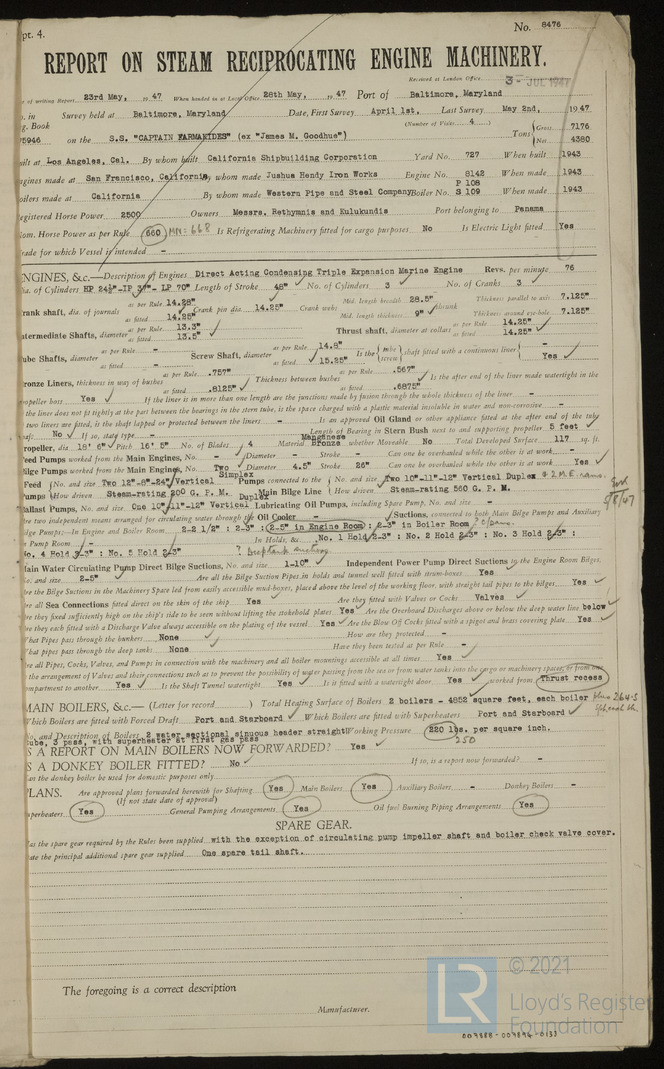 pt. 4.
No. 8476
REPORT ON STEAM RECIPROCATING ENGINE MACHINERY.
Received at London Office 3- JUL 1947
of writing Report 23rd May, 1947 When handed in at Local Office 28th May, 1947 Port of Baltimore, Maryland
in Survey held at Baltimore, Maryland Date, First Survey April 1st, Last Survey May 2nd, 1947
g. Book (Number of Visits 4 )
5946 on the S.S. "CAPTAIN FARMAKIDES" (ex "James M. Goodhue") Tons Gross 7176 Net 4380
uilt at Los Angeles, Cal. By whom built California Shipbuilding Corporation Yard No. 727 When built 1943
ngines made at San Francisco, California By whom made Joshua Hendy Iron Works Engine No. 8142 When made 1943
oilers made at California By whom made Western Pipe and Steel Company Boiler No. P 108 S 109 When made 1943
egistered Horse Power 2500 Owners Messrs. Rethymnis and Kulukundis Port belonging to Panama
om. Horse Power as per Rule 660 MN=668 Is Refrigerating Machinery fitted for cargo purposes No Is Electric Light fitted Yes
rade for which Vessel is intended -
ENGINES, &c.—Description of Engines Direct Acting Condensing Triple Expansion Marine Engine Revs. per minute 76
ia. of Cylinders HP 24½"-IP 37"- LP 70" Length of Stroke 48" No. of Cylinders 3 No. of Cranks 3
rank shaft, dia. of journals as per Rule 14.28" as fitted 14.25" Crank pin dia. 14.25" Crank webs Mid. length breadth 28.5" Mid. length thickness 9" shrunk Thickness parallel to axis 7.125" Thickness around eye-hole 7.125"
ntermediate Shafts, diameter as per Rule 13.3" as fitted 13.5" Thrust shaft, diameter at collars as per Rule 14.25" as fitted 14.25"
ube Shafts, diameter as per Rule - as fitted - Screw Shaft, diameter as per Rule 14.8" as fitted 15.25" Is the tube screw shaft fitted with a continuous liner - Yes
ronze Liners, thickness in way of bushes as per Rule .757" as fitted .8125" Thickness between bushes as per Rule .567" as fitted .6875" Is the after end of the liner made watertight in the
ropeller boss Yes If the liner is in more than one length are the junctions made by fusion through the whole thickness of the liner -
the liner does not fit tightly at the part between the bearings in the stern tube, is the space charged with a plastic material insoluble in water and non-corrosive -
two liners are fitted, is the shaft lapped or protected between the liners - Is an approved Oil Gland or other appliance fitted at the after end of the tube
haft No If so, state type - Length of Bearing in Stern Bush next to and supporting propeller 5 feet
ropeller, dia 18' 6" Pitch 16' 5" No. of Blades 4 Material Manganese Bronze whether Moveable No Total Developed Surface 117 sq. ft.
eed Pumps worked from the Main Engines, No. - Diameter - Stroke - Can one be overhauled while the other is at work -
ilge Pumps worked from the Main Engines, No. Two Diameter 4.5" Stroke 26" Can one be overhauled while the other is at work Yes
Feed Pumps No. and size Two 12"-8"-24" Vertical Simplex How driven Steam-rating 200 G. P. M. Pumps connected to the Main Bilge Line No. and size Two 10"-11"-12" Vertical Duplex & 2 M.E. rams. How driven Steam-rating 560 G. P. M.
allast Pumps, No. and size One 10"-11"-12" Vertical Duplex Lubricating Oil Pumps, including Spare Pump, No. and size -
re two independent means arranged for circulating water through the Oil Cooler - Suctions, connected to both Main Bilge Pumps and Auxiliary
lge Pumps;—In Engine and Boiler Room 2-2 1/2" : 2-3" : 2-5" in Engine Room : 2-3" in Boiler Room
Pump Room - In Holds, &c. No. 1 Hold 2-3" : No. 2 Hold 2-3" : No. 3 Hold 2-3" :
No. 4 Hold 2-3" : No. 5 Hold 2-3" ? Deeptank suctions
ain Water Circulating Pump Direct Bilge Suctions, No. and size 1-10" Independent Power Pump Direct Suctions to the Engine Room Bilges,
o. and size 2-5" Are all the Bilge Suction Pipes in holds and tunnel well fitted with strum-boxes Yes
re the Bilge Suctions in the Machinery Space led from easily accessible mud-boxes, placed above the level of the working floor, with straight tail pipes to the bilges Yes
re all Sea Connections fitted direct on the skin of the ship Yes Are they fitted with Valves or Cocks Valves
re they fixed sufficiently high on the ship's side to be seen without lifting the stokehold plates Yes Are the Overboard Discharges above or below the deep water line below
re they each fitted with a Discharge Valve always accessible on the plating of the vessel Yes Are the Blow Off Cocks fitted with a spigot and brass covering plate Yes
hat Pipes pass through the bunkers None How are they protected -
hat pipes pass through the deep tanks None Have they been tested as per Rule -
re all Pipes, Cocks, Valves, and Pumps in connection with the machinery and all boiler mountings accessible at all times Yes
the arrangement of Valves and their connections such as to prevent the possibility of water passing from the sea or from water tanks into the cargo or machinery spaces, or from one
mpartment to another Yes Is the Shaft Tunnel watertight Yes Is it fitted with a watertight door Yes worked from Thrust recess
MAIN BOILERS, &c.— (Letter for record ) Total Heating Surface of Boilers 2 boilers - 4852 square feet, each boiler
Which Boilers are fitted with Forced Draft Port and Starboard Which Boilers are fitted with Superheaters Port and Starboard
No. and Description of Boilers 2 water sectional sinuous header straight Working Pressure 220 lbs. per square inch.
tube, 3 pass, with superheater at first gas pass 250
S A REPORT ON MAIN BOILERS NOW FORWARDED? Yes
S A DONKEY BOILER FITTED? No If so, is a report now forwarded? -
an the donkey boiler be used for domestic purposes only -
LANS. Are approved plans forwarded herewith for Shafting Yes Main Boilers Yes Auxiliary Boilers - Donkey Boilers -
(If not state date of approval)
uperheaters Yes General Pumping Arrangements Yes Oil fuel Burning Piping Arrangements Yes
SPARE GEAR.
as the spare gear required by the Rules been supplied with the exception of circulating pump impeller shaft and boiler check valve cover.
ate the principal additional spare gear supplied One spare tail shaft.
The foregoing is a correct description
Manufacturer.
LR
© 2021
Lloyd's Register
Foundation
007888-007896-0137